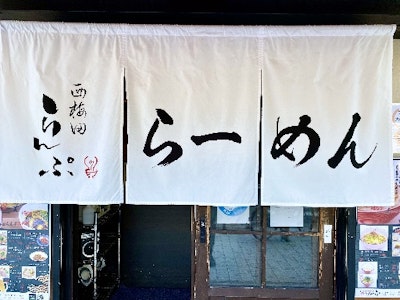 西梅田
らんぷ
らーめん